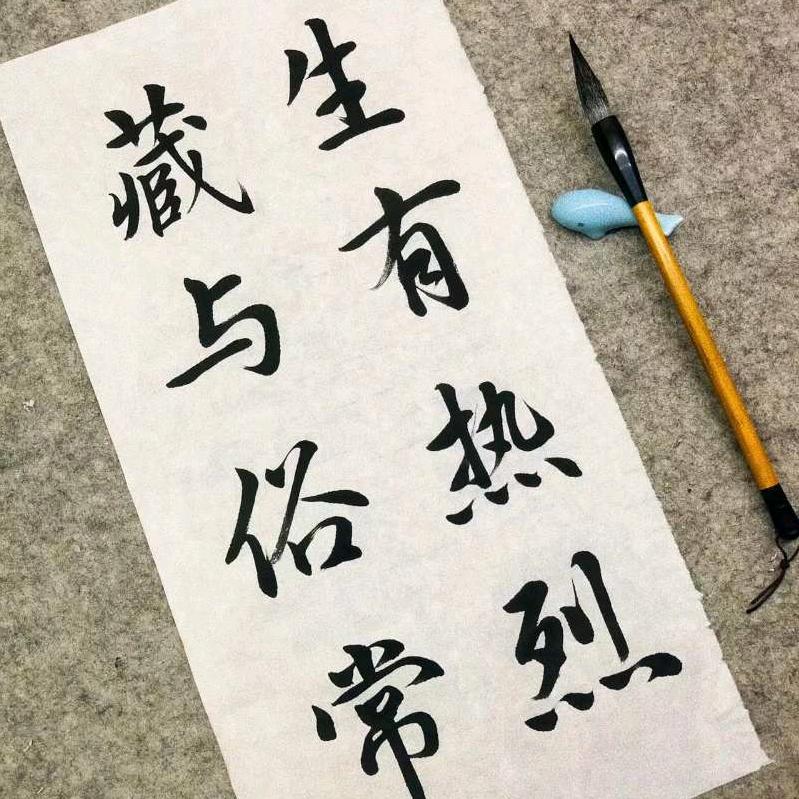 生有热烈
藏与俗常